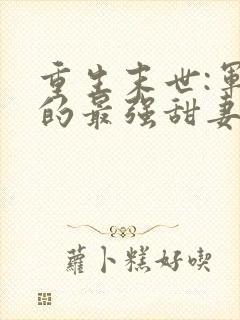 重生末世:軍
的最强甜妻
蘿卜糕好喫